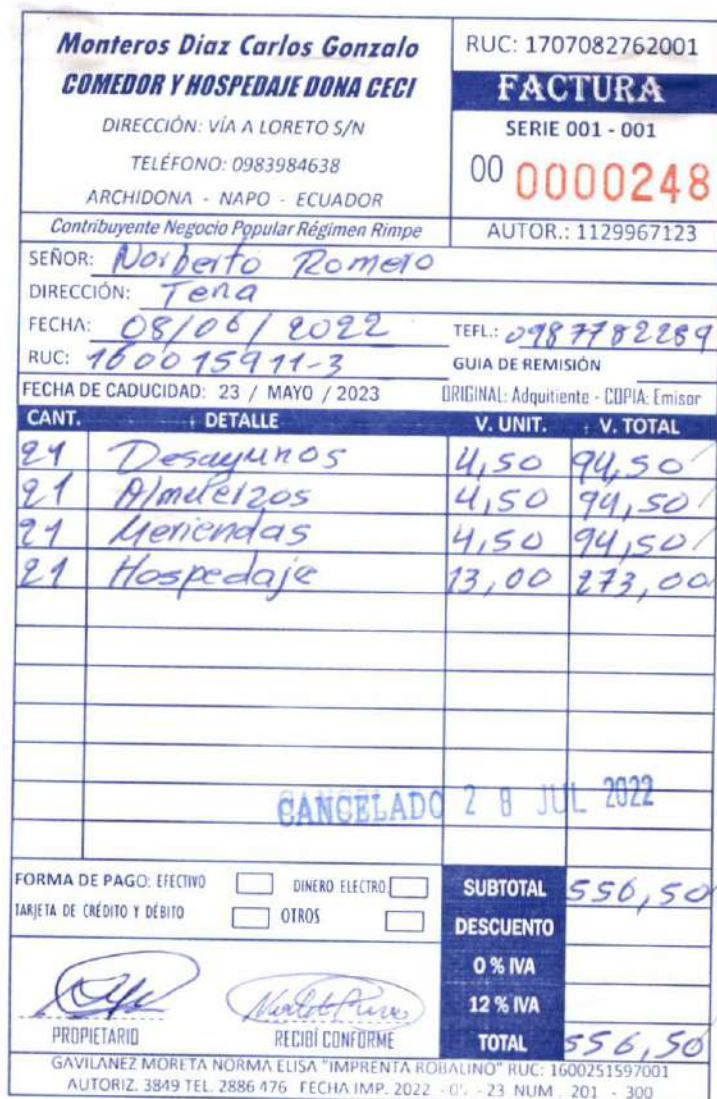 Monteros Diaz Carlos Gonzalo
COMEDOR Y HOSPEDAJE DONA CECI
DIRECCIÓN: VÍA A LORETO S/N
TELÉFONO: 0983984638
ARCHIDONA - NAPO - ECUADOR
Contribuyente Negocio Popular Régimen Rimpe
RUC: 1707082762001
FACTURA
SERIE 001 - 001
00 0000248
AUTOR.: 1129967123
SEÑOR: Norberto Romero
DIRECCIÓN: Tena
FECHA: 08/06/2022 TEFL.: 0987782289
RUC: 160015911-3 GUIA DE REMISIÓN
FECHA DE CADUCIDAD: 23 / MAYO / 2023 ORIGINAL: Adquitiente - COPIA: Emisor
CANT. DETALLE V. UNIT. V. TOTAL
21 Desayunos 4,50 94,50
21 Almuerzos 4,50 94,50
21 Meriendas 4,50 94,50
21 Hospedaje 13,00 273,00
CANCELADO 28 JUL 2022
FORMA DE PAGO: EFECTIVO DINERO ELECTRO.
TARJETA DE CRÉDITO Y DÉBITO OTROS
SUBTOTAL 556,50
DESCUENTO
0 % IVA
12 % IVA
TOTAL 556,50
PROPIETARIO RECIBÍ CONFORME
GAVILANEZ MORETA NORMA ELISA "IMPRENTA ROBALINO" RUC: 1600251597001
AUTORIZ. 3849 TEL. 2886 476 FECHA IMP. 2022 - - 23 NUM. 201 - 300